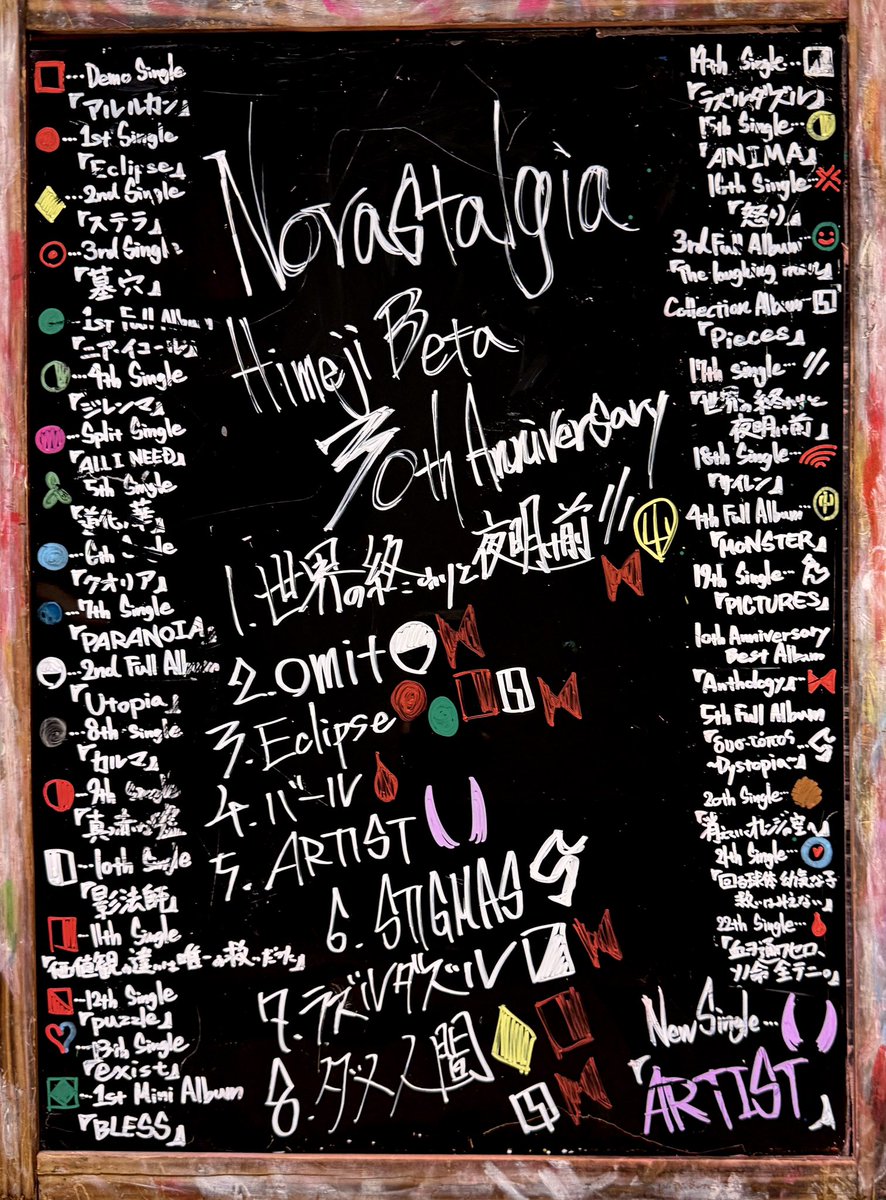 …Demo Single
『アルルカン』
…1st Single
『Eclipse』
…2nd Single
『ステラ』
…3rd Single
『墓穴』
…1st Full Album
『ニア・イコール』
…4th Single
『ジレンマ』
…Split Single
『ALL I NEED』
…5th Single
『道化の華』
…6th Single
『クオリア』
…7th Single
『PARANOIA』
…2nd Full Album
『Utopia』
…8th Single
『カルマ』
…9th Single
『真っ赤な嘘』
…10th Single
『影法師』
…11th Single
『価値観の違いは唯一の救いだった』
…12th Single
『puzzle』
…13th Single
『exist』
…1st Mini Album
『BLESS』
Novastalgia
Himeji Beta
30th Anniversary
1.世界の終わりと夜明け前
2.omit
3.Eclipse
4.バール
5.ARTIST
6.STIGMAS
7.ラズルダズル
8.ダメ人間
14th Single…
『ラズルダズル』
15th Single…
『ANIMA』
16th Single…
『怒り』
3rd Full Album…
『The laughing man』
Collection Album…
『Pieces』
17th Single…
『世界の終わりと
夜明け前』
18th Single…
『サイレン』
4th Full Album…
『MONSTER』
19th Single…
『PICTURES』
10th Anniversary
Best Album
『Anthology』…
5th Full Album
…
~Dystopia~』
20th Single…
『消えていくオレンジの空へ』
21th Single…
『回る球体 幼気な子
救いはみえない』
22th Single…
New Single…
『ARTIST』